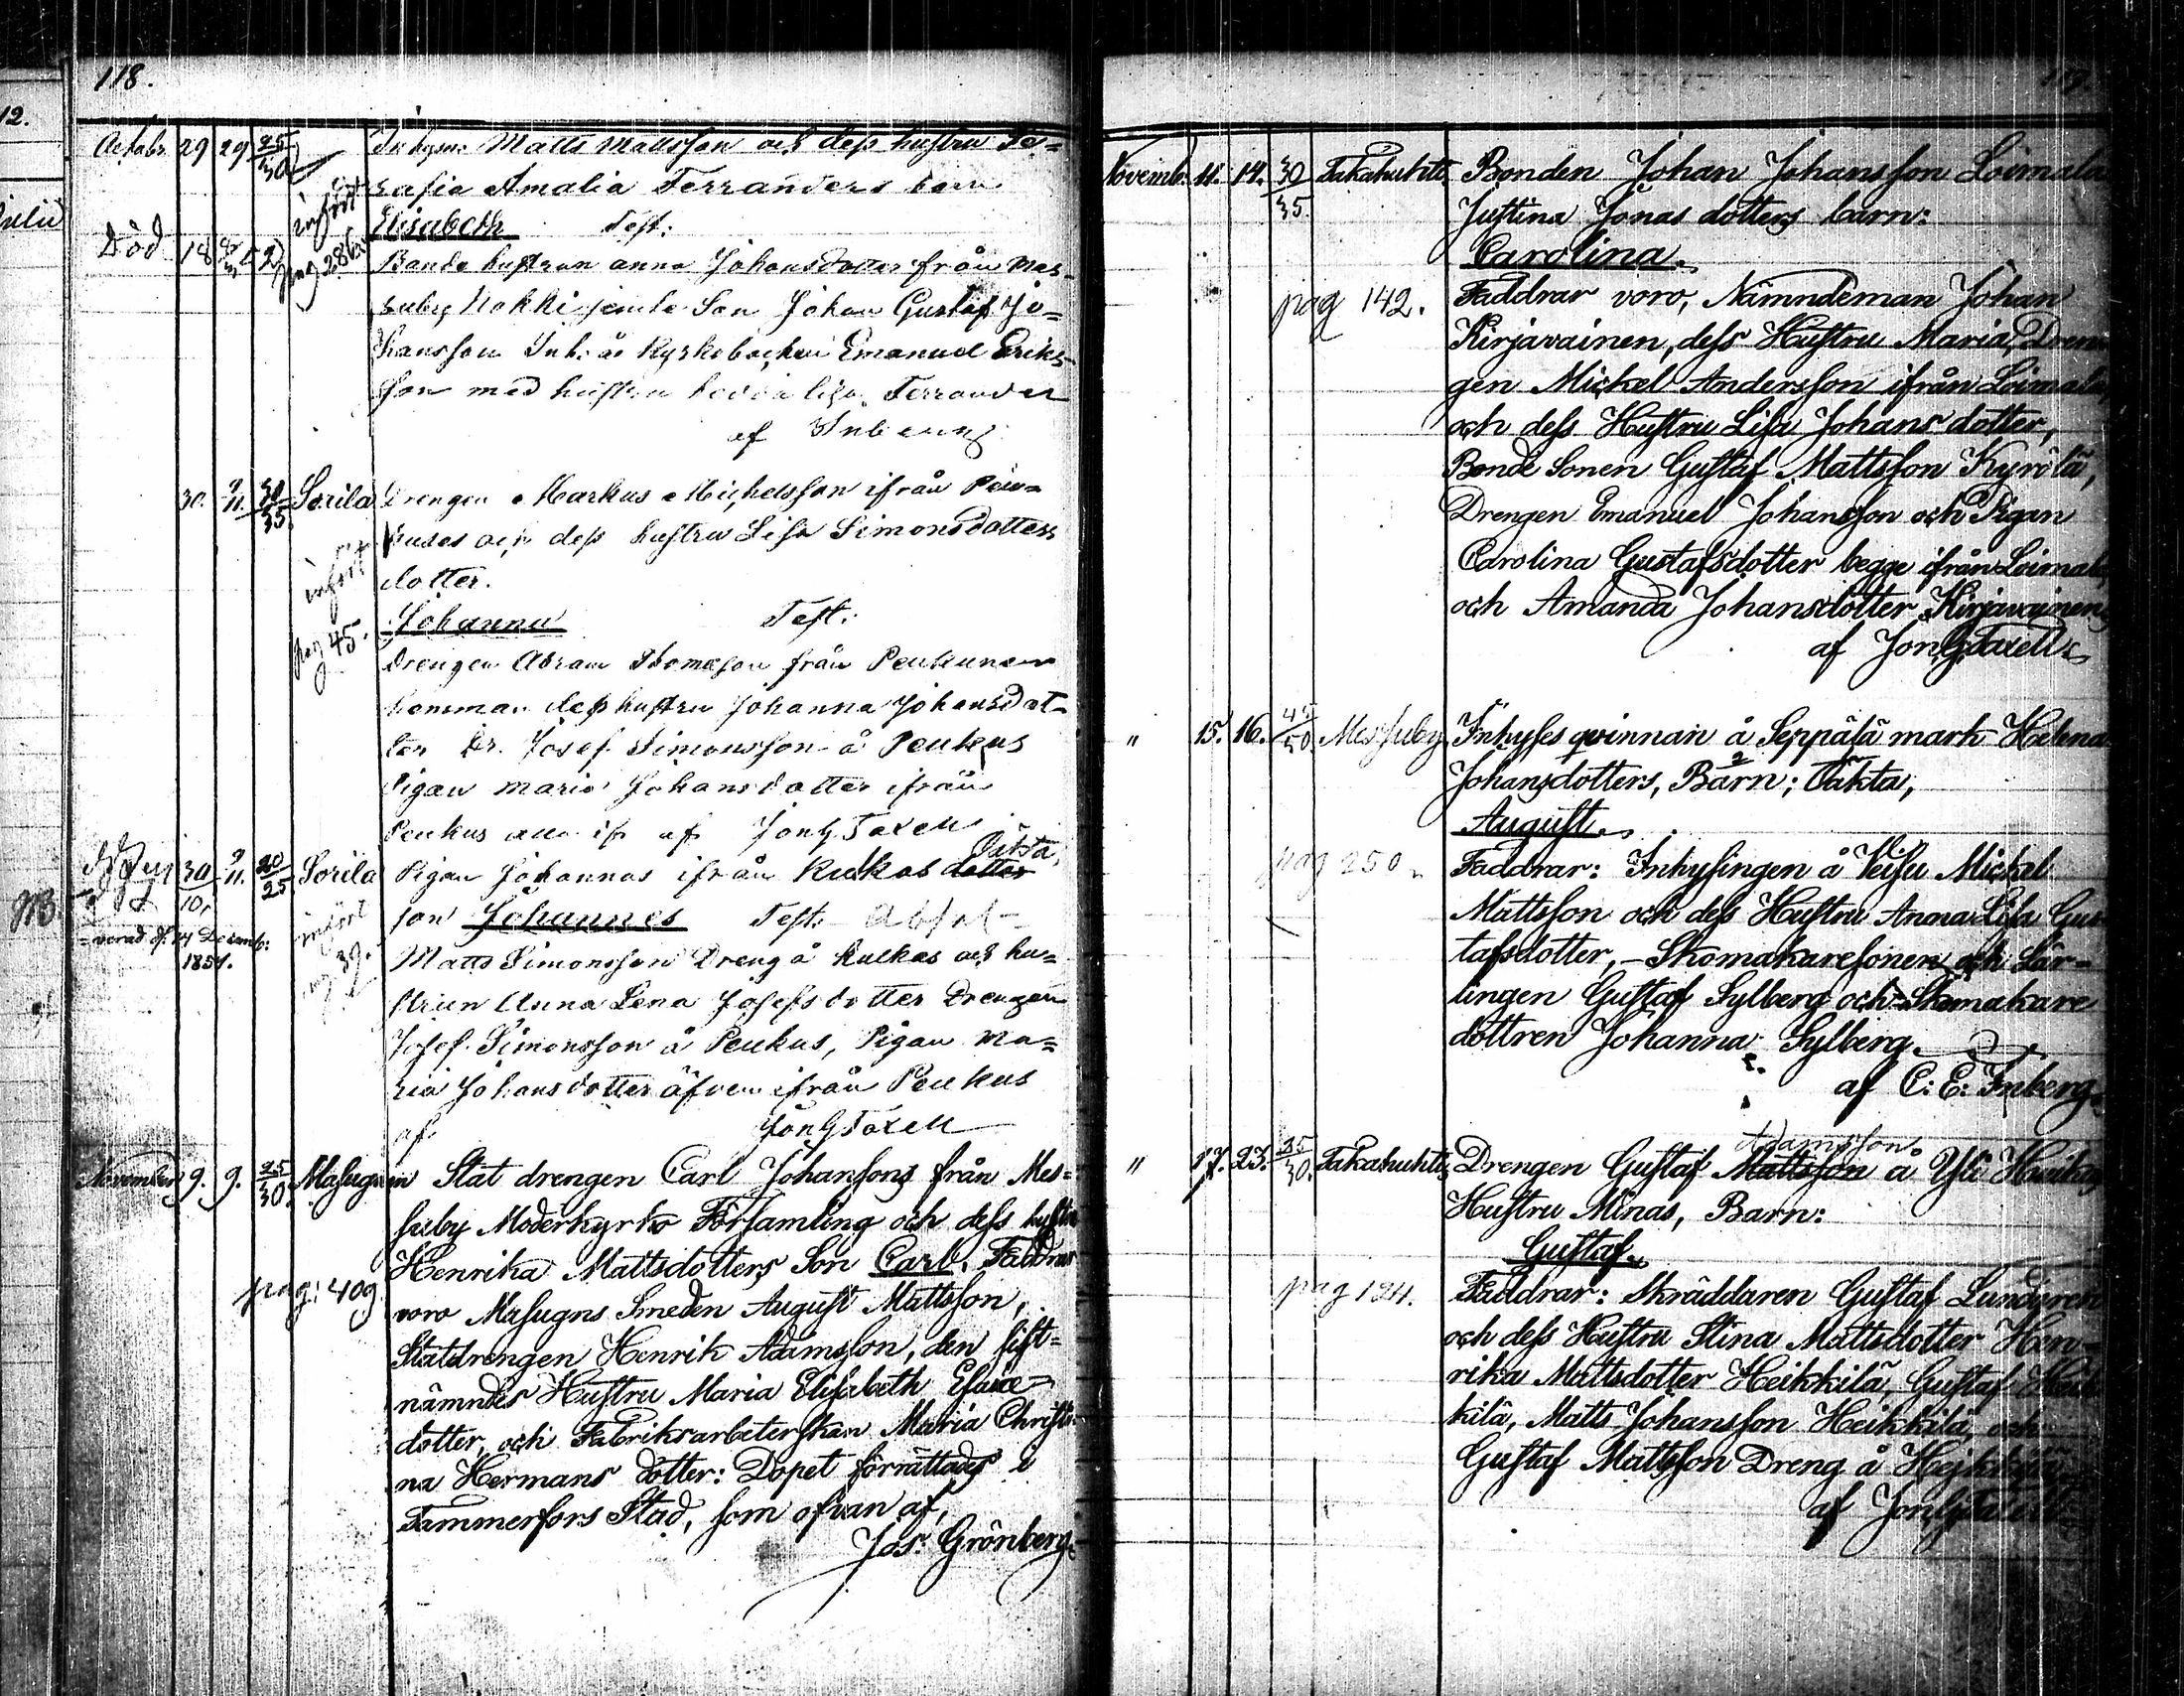 118.
12.
Octobr. 29 29 25/30 Inhys: Matts Mattsson och dess hustru Se=
rafia Amalia Terranders barn
infört
Elisabeth Test:
Död 18 pag 286. Bonde hustrun Anna Johansdotter från Mes-
suby Nokki jemte Son Johan Gustaf Jo=
hansson Inh: å Kyrkobacken Emanuel Eriks-
son med hustru Lisa Terrander
af Inberg
30. 9/11. 30/35. Sorila Drengen Markus Michelsson ifrån Peu=
kus och dess hustru Lisa Simonsdotters
infört
dotter.
pag 45. Johanna Test:
Drengen Abram Thomasson från Peukunen
hemman dess hustru Johanna Johansdot-
ter Dr. Josef Simonsson å Peukus
Pigan Maria Johansdotter ifrån
Peukus af Jon G Taxell
30/10. 9/11. 20/25 Sorila Pigan Johannas ifrån Kulkas dotter Oäkta
NB. infört son Johannes Test:
14 Decemb: 1851. 39. Matts Simonsson Dreng å Kulkas och hu=
strun Anna Lena Josefsdotter Drengen
Josef Simonsson å Peukus, Pigan Ma=
ria Johansdotter äfven ifrån Peukus
af Jon G Taxell
November 9. 9. 25/30. Masugnen Stat drengen Carl Johansons från Mes=
suby Moderkyrko Församling och dess hustru
Henrika Mattsdotters Son Carl. Faddrar
pag: 409 voro Masugns Smeden August Mattsson,
Statdrengen Henrik Adamsson, den sist=
nämndes Hustru Maria Elisabeth Esaie=
dotter, och Fabriksarbeterskan Maria Christi=
na Hermans dotter: Dopet förrättades i
Tammerfors Stad, som ofvan af,
Jos: Grönberg.
119.
Novemb. 11. 14. 30/35. Takahuhti. Bonden Johan Johansson Loimala
Justina Jonas dotters barn:
Carolina.
pag 142. Faddrar voro, Nämndeman Johan
Kirjavainen, dess Hustru Maria, Dren
gen Mickel Andersson ifrån Loimala,
och dess Hustru Lisa Johans dotter,
Bonde Sonen Gustaf Mattsson Kyrölä,
Drengen Emanuel Johansson och Pigan
Carolina Gustafsdotter begge ifrån Loimala,
och Amanda Johansdotter Kirjavainen,
af Jon G Taxell
" 15. 16. 45/50 Messuby Inhyses qvinnan å Seppälä mark Helena
Johansdotters, Barn; Oäkta,
August.
pag 250. Faddrar: Inhysingen å Veisu Mickel
Mattsson och dess Hustru Anna Lisa Gus
tafsdotter, - Skomakaresonen och Lär=
lingen Gustaf Sylberg och Skomakare
dottren Johanna Sylberg.
af C: E: Inberg.
" 17. 23. 25/30. Takahuhti, Drengen Gustaf Mattsson Adamsson å Yli Heikkilä
Hustru Minas, Barn:
Gustaf.
pag 124. Faddrar: Skräddaren Gustaf Lundgren
och dess Hustru Stina Mattsdotter Hen-
rika Mattsdotter Heikkilä, Gustaf Heik
kilä, Matts Johansson Heikkilä, och
Gustaf Mattsson Dreng å Hejkkilä
af Jon G Taxell